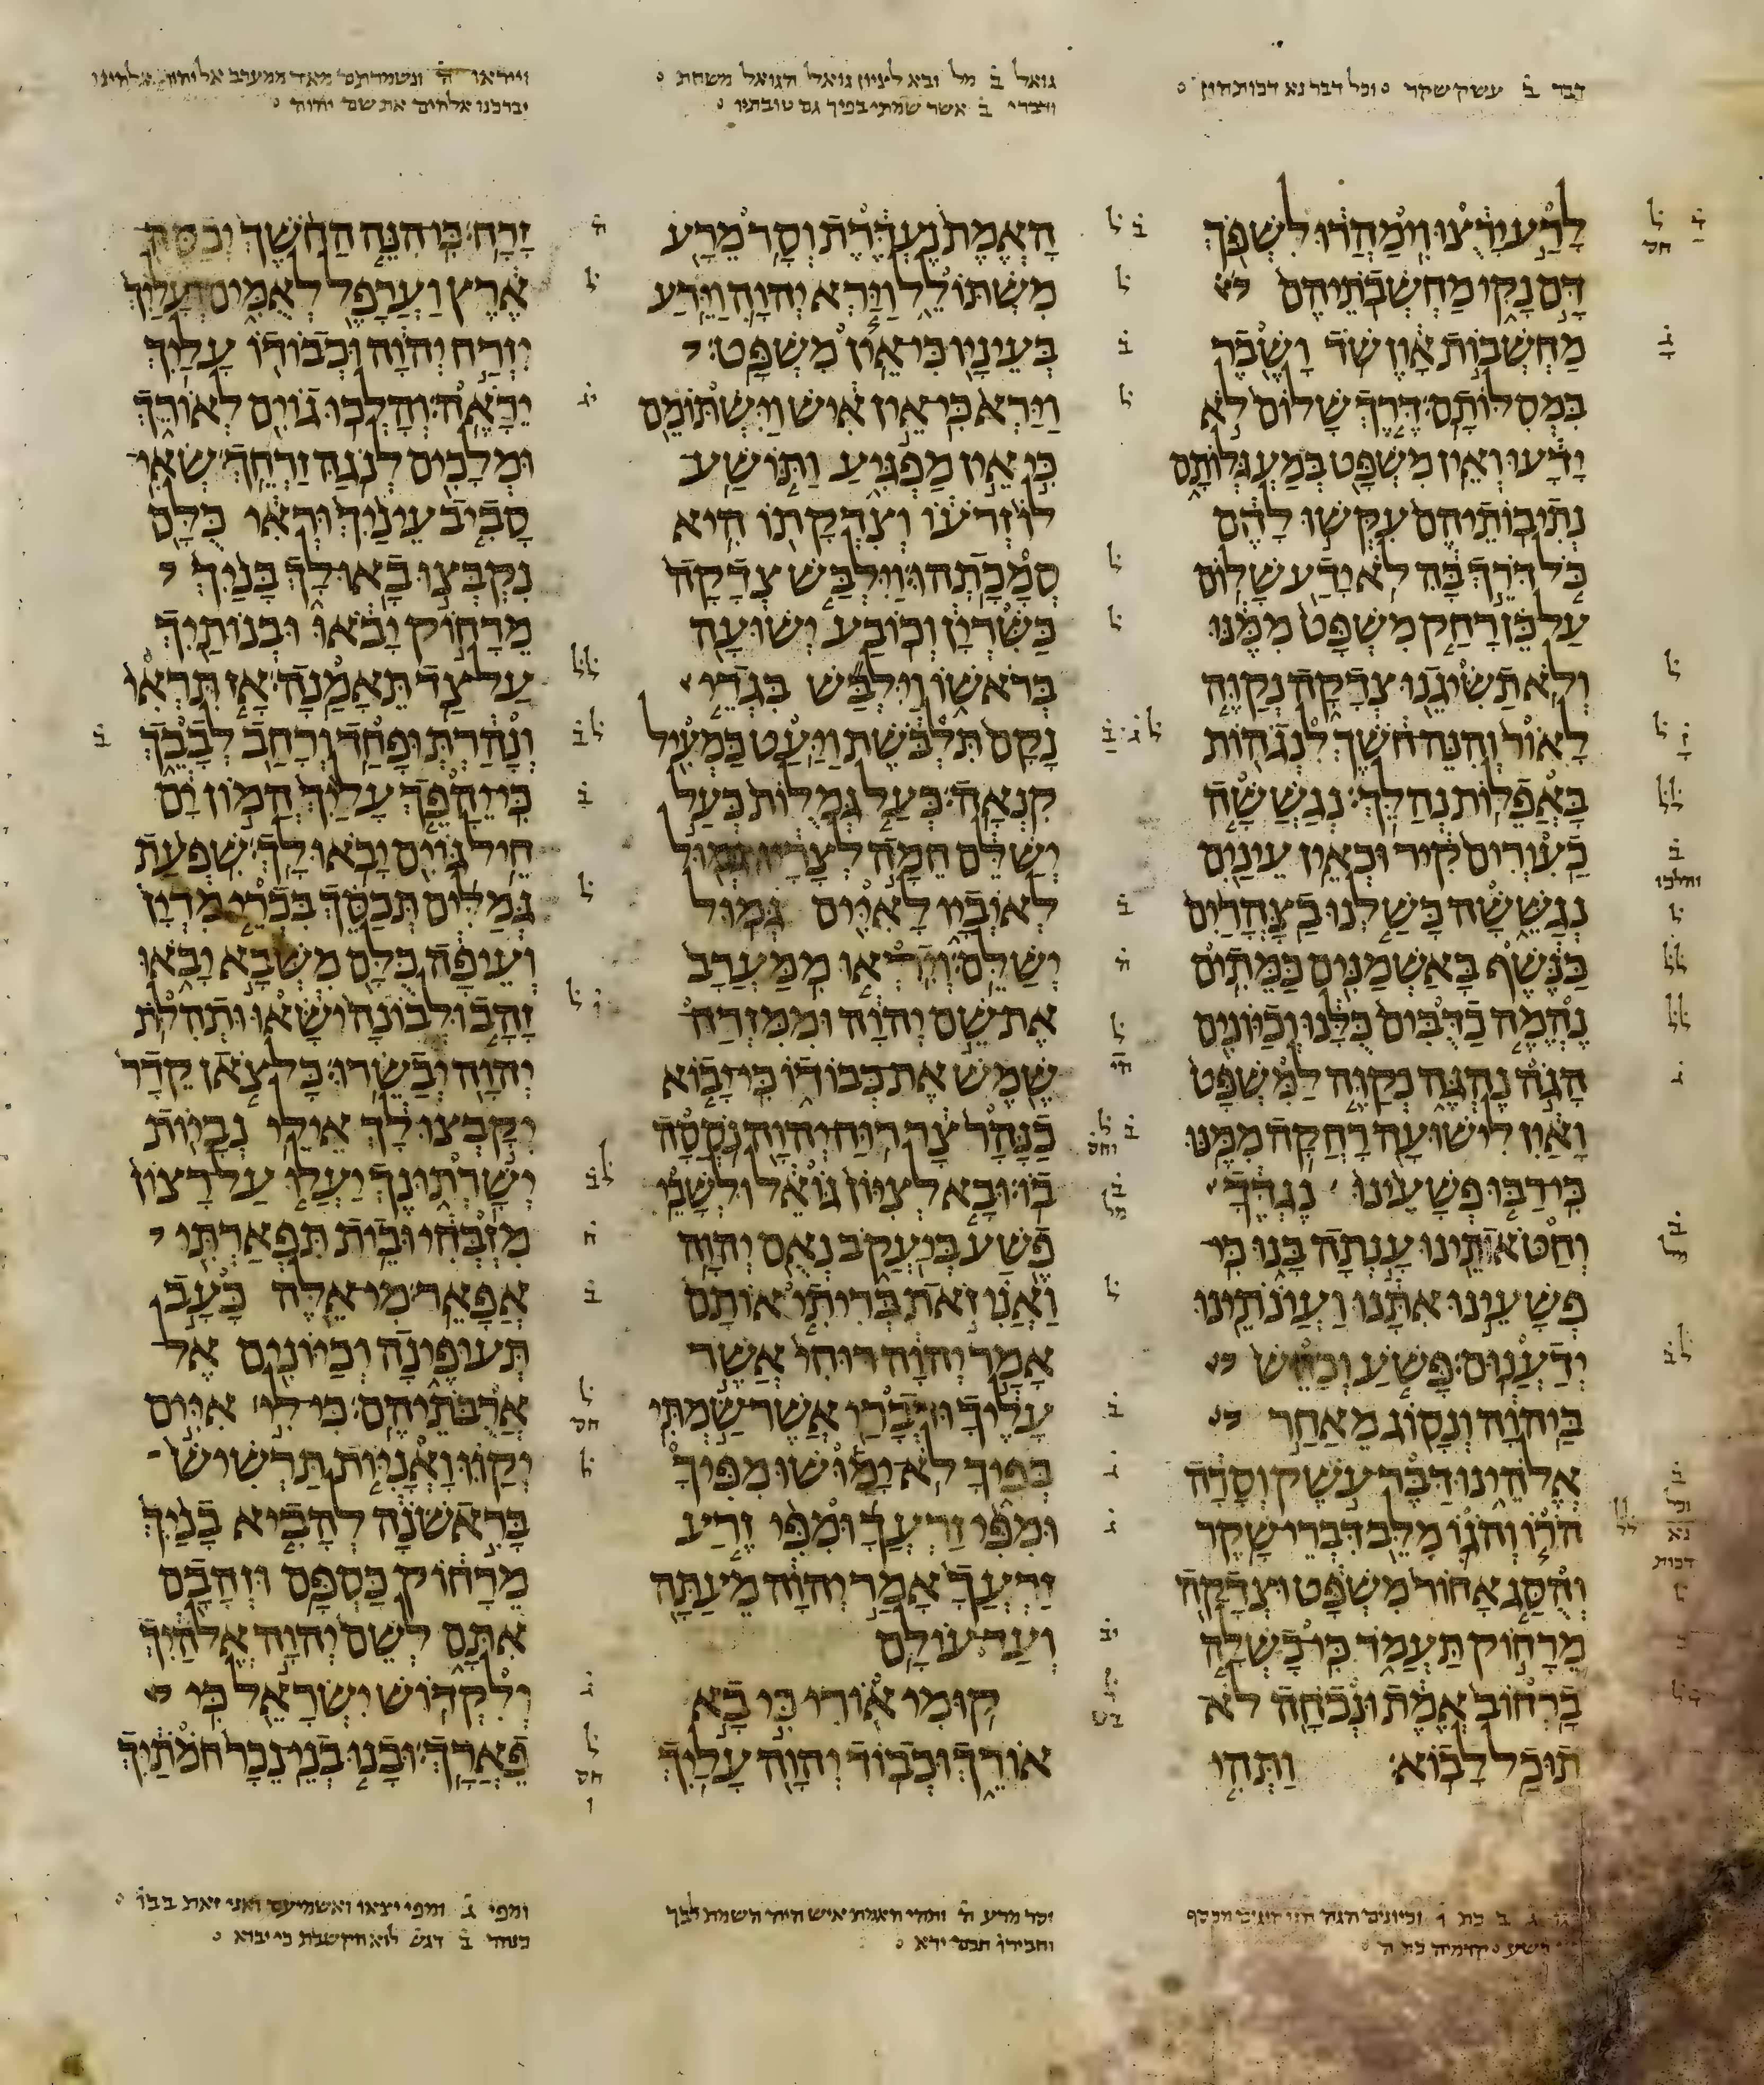 דבר ב עשק שקר וכל דבר נא דכותהון
לָרַע יָרֻצוּ וִימַהֲרוּ לִשְׁפֹּךְ
דָּם נָקִי מַחְשְׁבֹתֵיהֶם
מַחְשְׁבוֹת אָוֶן שֹׁד וָשֶׁבֶר
בִּמְסִלּוֹתָם׃ דֶּרֶךְ שָׁלוֹם לֹא
יָדָעוּ וְאֵין מִשְׁפָּט בְּמַעְגְּלוֹתָם
נְתִיבוֹתֵיהֶם עִקְּשׁוּ לָהֶם
כֹּל דֹּרֵךְ בָּהּ לֹא יָדַע שָׁלוֹם׃
עַל כֵּן רָחַק מִשְׁפָּט מִמֶּנּוּ
וְלֹא תַשִּׂיגֵנוּ צְדָקָה נְקַוֶּה
לָאוֹר וְהִנֵּה חֹשֶׁךְ לִנְגֹהוֹת
בָּאֲפֵלוֹת נְהַלֵּךְ׃ נְגַשֲׁשָׁה
כַעִוְרִים קִיר וּכְאֵין עֵינַיִם
נְגַשֵּׁשָׁה כָּשַׁלְנוּ בַצָּהֳרַיִם
כַּנֶּשֶׁף בָּאַשְׁמַנִּים כַּמֵּתִים׃
נֶהֱמֶה כַדֻּבִּים כֻּלָּנוּ וְכַיּוֹנִים
הָגֹה נֶהְגֶּה נְקַוֶּה לַמִּשְׁפָּט
וָאַיִן לִישׁוּעָה רָחֲקָה מִמֶּנּוּ׃
כִּי רַבּוּ פְשָׁעֵינוּ נֶגְדֶּךָ
וְחַטֹּאותֵינוּ עָנְתָה בָּנוּ כִּי
פְשָׁעֵינוּ אִתָּנוּ וַעֲוֺנֹתֵינוּ
יְדַעֲנוּם׃ פָּשֹׁעַ וְכַחֵשׁ
בַּיהוָה וְנָסוֹג מֵאַחַר
אֱלֹהֵינוּ דַּבֶּר עֹשֶׁק וְסָרָה
הֹרוֹ וְהֹגוֹ מִלֵּב דִּבְרֵי שָׁקֶר׃
וְהֻסַּג אָחוֹר מִשְׁפָּט וּצְדָקָה
מֵרָחוֹק תַּעֲמֹד כִּי כָשְׁלָה
בָרְחוֹב אֱמֶת וּנְכֹחָה לֹא
תוּכַל לָבוֹא׃ וַתְּהִי
גואל ב מל ובא לציון גואל הגואל משחת
ודברי ב אשר שמתי בפיך גם טובתיו
הָאֱמֶת נֶעְדֶּרֶת וְסָר מֵרָע
מִשְׁתּוֹלֵל וַיַּרְא יְהוָה וַיֵּרַע
בְּעֵינָיו כִּי אֵין מִשְׁפָּט׃
וַיַּרְא כִּי אֵין אִישׁ וַיִּשְׁתּוֹמֵם
כִּי אֵין מַפְגִּיעַ וַתּוֹשַׁע
לוֹ זְרֹעוֹ וְצִדְקָתוֹ הִיא
סְמָכָתְהוּ׃ וַיִּלְבַּשׁ צְדָקָה
כַּשִּׁרְיָן וְכוֹבַע יְשׁוּעָה
בְּרֹאשׁוֹ וַיִּלְבַּשׁ בִּגְדֵי
נָקָם תִּלְבֹּשֶׁת וַיַּעַט כַּמְעִיל
קִנְאָה׃ כְּעַל גְּמֻלוֹת כְּעַל
יְשַׁלֵּם חֵמָה לְצָרָיו גְּמוּל
לְאֹיְבָיו לָאִיִּים גְּמוּל
יְשַׁלֵּם׃ וְיִירְאוּ מִמַּעֲרָב
אֶת שֵׁם יְהוָה וּמִמִּזְרַח
שֶׁמֶשׁ אֶת כְּבוֹדוֹ כִּי יָבוֹא
כַנָּהָר צָר רוּחַ יְהוָה נֹסְסָה
בוֹ׃ וּבָא לְצִיּוֹן גּוֹאֵל וּלְשָׁבֵי
פֶשַׁע בְּיַעֲקֹב נְאֻם יְהוָה׃
וַאֲנִי זֹאת בְּרִיתִי אוֹתָם
אָמַר יְהוָה רוּחִי אֲשֶׁר
עָלֶיךָ וּדְבָרַי אֲשֶׁר שַׂמְתִּי
בְּפִיךָ לֹא יָמוּשׁוּ מִפִּיךָ
וּמִפִּי זַרְעֲךָ וּמִפִּי זֶרַע
זַרְעֲךָ אָמַר יְהוָה מֵעַתָּה
וְעַד עוֹלָם׃
קוּמִי אוֹרִי כִּי בָא
אוֹרֵךְ וּכְבוֹד יְהוָה עָלַיִךְ
וייראו ה ונשמרתם מאד ממערב אל יהוה אלהינו
יברכנו אלהים את שם יהוה
זָרָח׃ כִּי הִנֵּה הַחֹשֶׁךְ יְכַסֶּה
אֶרֶץ וַעֲרָפֶל לְאֻמִּים וְעָלַיִךְ
יִזְרַח יְהוָה וּכְבוֹדוֹ עָלַיִךְ
יֵרָאֶה׃ וְהָלְכוּ גוֹיִם לְאוֹרֵךְ
וּמְלָכִים לְנֹגַהּ זַרְחֵךְ׃ שְׂאִי
סָבִיב עֵינַיִךְ וּרְאִי כֻּלָּם
נִקְבְּצוּ בָאוּ לָךְ בָּנַיִךְ
מֵרָחוֹק יָבֹאוּ וּבְנוֹתַיִךְ
עַל צַד תֵּאָמַנָה׃ אָז תִּרְאִי
וְנָהַרְתְּ וּפָחַד וְרָחַב לְבָבֵךְ
כִּי יֵהָפֵךְ עָלַיִךְ הֲמוֹן יָם
חֵיל גּוֹיִם יָבֹאוּ לָךְ׃ שִׁפְעַת
גְּמַלִּים תְּכַסֵּךְ בִּכְרֵי מִדְיָן
וְעֵיפָה כֻּלָּם מִשְּׁבָא יָבֹאוּ
זָהָב וּלְבוֹנָה יִשָּׂאוּ וּתְהִלֹּת
יְהוָה יְבַשֵּׂרוּ׃ כָּל צֹאן קֵדָר
יִקָּבְצוּ לָךְ אֵילֵי נְבָיוֹת
יְשָׁרְתוּנֶךְ יַעֲלוּ עַל רָצוֹן
מִזְבְּחִי וּבֵית תִּפְאַרְתִּי
אֲפָאֵר׃ מִי אֵלֶּה כָּעָב
תְּעוּפֶינָה וְכַיּוֹנִים אֶל
אֲרֻבֹּתֵיהֶם׃ כִּי לִי אִיִּים
יְקַוּוּ וָאֳנִיּוֹת תַּרְשִׁישׁ
בָּרִאשֹׁנָה לְהָבִיא בָנַיִךְ
מֵרָחוֹק כַּסְפָּם וּזְהָבָם
אִתָּם לְשֵׁם יְהוָה אֱלֹהַיִךְ
וְלִקְדוֹשׁ יִשְׂרָאֵל כִּי
פֵאֲרָךְ׃ וּבָנוּ בְנֵי נֵכָר חֹמֹתַיִךְ
וסר מרע ה ותהי האמת איש היה השמת לבך
ומפי ג ומפי יצאו ואשמיעם ואני זאת בבו
כנהר ב דגש לוא הקשבת כי יבוא